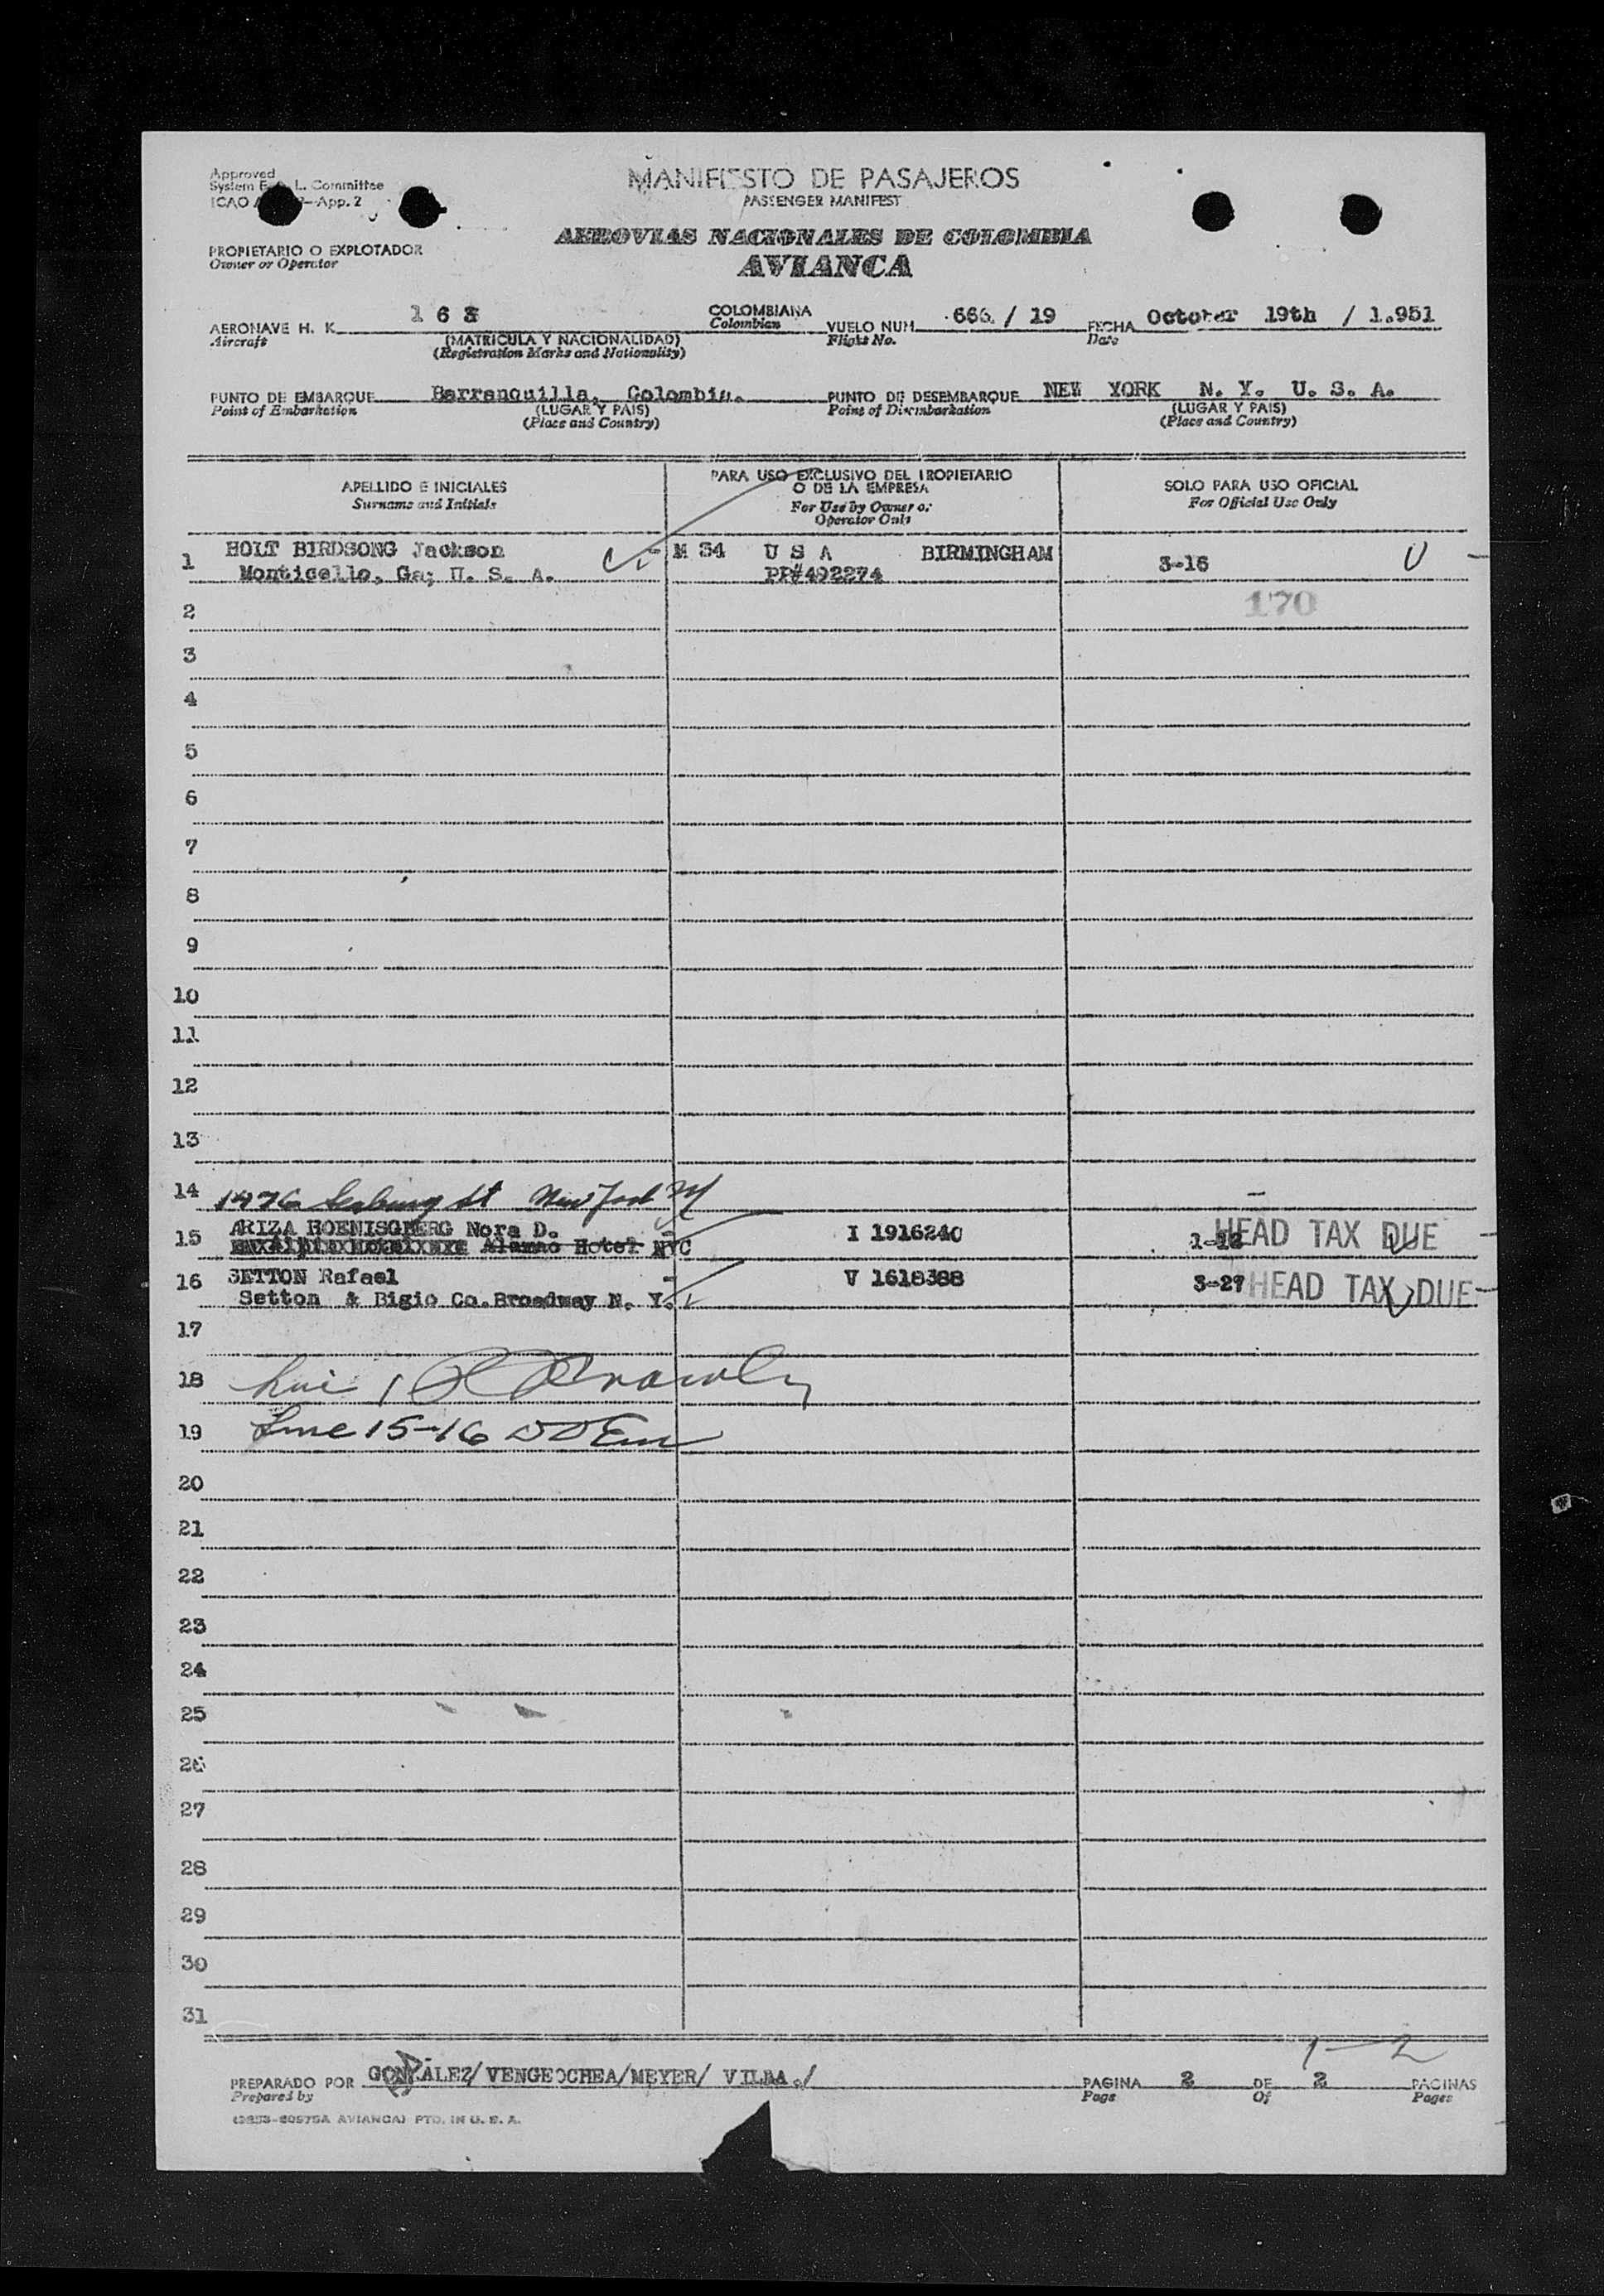 Approved
System E. & L. Committee
ICAO App. 2
MANIFIESTO DE PASAJEROS
PASSENGER MANIFEST
PROPIETARIO O EXPLOTADOR
Owner or Operator
AEROVIAS NACIONALES DE COLOMBIA
AVIANCA
AERONAVE H. K. 1 6 3 COLOMBIANA VUELO NUM. 666 / 19 FECHA October 19th / 1.951
Aircraft (MATRICULA Y NACIONALIDAD) Colombian Flight No. Date
(Registration Marks and Nationality)
PUNTO DE EMBARQUE Barranquilla, Colombia. PUNTO DE DESEMBARQUE NEW YORK N. Y. U. S. A.
Point of Embarkation (LUGAR Y PAIS) Point of Disembarkation (LUGAR Y PAIS)
(Place and Country) (Place and Country)
APELLIDO E INICIALES
Surname and Initials
PARA USO EXCLUSIVO DEL PROPIETARIO
O DE LA EMPRESA
For Use by Owner or
Operator Only
SOLO PARA USO OFICIAL
For Official Use Only
1 HOLT BIRDSONG Jackson M 34 U S A BIRMINGHAM 3-16
Monticello, Ga; U. S. A. PP#492274
2 170
3
4
5
6
7
8
9
10
11
12
13
14 St New York
15 ARIZA HOENISGBERG Nora D. I 1916240 1-12 HEAD TAX DUE
Alamac Hotel NYC
16 SETTON Rafael V 1618388 3-27 HEAD TAX DUE
Setton & Bigio Co. Broadway N. Y.
17
18
19 Line 15-16
20
21
22
23
24
25
26
27
28
29
30
31
1-2
PREPARADO POR GONZALEZ/ VENGEOCHEA/MEYER/ VILBA./ PAGINA 2 DE 2 PAGINAS
Prepared by Page Of Pages
AVIANCA) PTD. IN U. S. A.